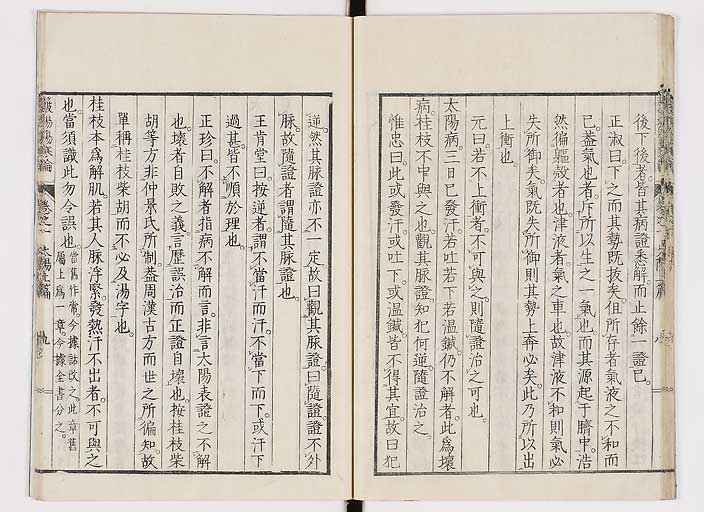 後下後者皆其病證悉解而止餘一證已
正淑曰下之而其勢既拔矣但所存者氣液之不和而
已蓋氣也者斥所以生之一氣也而其源起于臍中浩
然徧軀殼者也津液者氣之車也故津液不和則氣必
失所御矣氣既失所御則其勢上奔必矣此乃所以出
上衝也
元曰若不上衝者不可與之則隨證治之可也
太陽病三日已發汗若吐若下若温鍼仍不解者此為壞
病桂枝不中與之也觀其脉證知犯何逆隨證治之
惟忠曰此或發汗或吐下或温鍼皆不得其宜故曰犯
逆然其脉證亦不一定故曰觀其脉證曰隨證證不外
脉故隨證者謂隨其脉證也
王肯堂曰按逆者謂不當汗而汗不當下而下或汗下
過甚皆不順於理也
正珍曰不解者指病不解而言非言太陽表證之不解
也壞者自敗之義言歷誤治而正證自壞也按桂枝柴
胡等方非仲景氏所制蓋周漢古方而世之所徧知故
單稱桂枝柴胡而不必及湯字也
桂枝本為解肌若其人脉浮緊發熱汗不出者不可與之
也當須識此勿令誤也當舊作常今據誌改之此章舊
屬上為一章今據全書分之